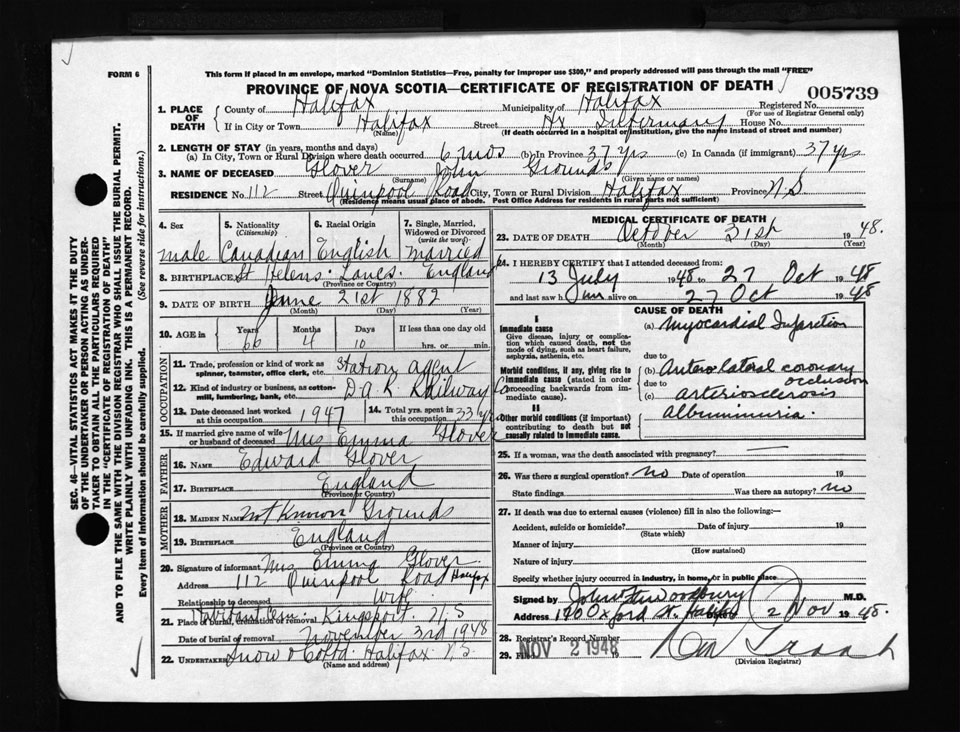 FORM 6
This form if placed in an envelope, marked "Dominion Statistics—Free, penalty for improper use $300," and properly addressed will pass through the mail "FREE"
PROVINCE OF NOVA SCOTIA—CERTIFICATE OF REGISTRATION OF DEATH
005739
1. PLACE OF DEATH
County of Halifax Municipality of Halifax Registered No.
(For use of Registrar General only)
If in City or Town Halifax Street Hx Infirmary House No.
(Name) (If death occurred in a hospital or institution, give the name instead of street and number)
2. LENGTH OF STAY (in years, months and days)
(a) In City, Town or Rural Division where death occurred 6 mos (b) In Province 37 yrs (c) In Canada (if immigrant) 37 yrs
3. NAME OF DECEASED Glover John Grounds
(Surname) (Given name or names)
RESIDENCE No. 112 Street Quinpool Road City, Town or Rural Division Halifax Province N.S
(Residence means usual place of abode. Post Office Address for residents in rural parts not sufficient)
4. Sex
male
5. Nationality (Citizenship)
Canadian
6. Racial Origin
English
7. Single, Married, Widowed or Divorced (write the word)
married
8. BIRTHPLACE St Helens Lancs. England
(Province or Country)
9. DATE OF BIRTH June 21st 1882
(Month) (Day) (Year)
10. AGE in
Years Months Days If less than one day old
66 4 10 hrs. or min.
OCCUPATION
11. Trade, profession or kind of work as spinner, teamster, office clerk, etc. Station agent
12. Kind of industry or business, as cotton-mill, lumbering, bank, etc. D.A.R Railway Co
13. Date deceased last worked at this occupation 1947
14. Total yrs. spent in this occupation 33 yrs
15. If married give name of wife or husband of deceased Mrs Emma Glover
FATHER
16. NAME Edward Glover
17. BIRTHPLACE England
(Province or Country)
MOTHER
18. MAIDEN NAME not Known Grounds
19. BIRTHPLACE England
(Province or Country)
20. Signature of informant Mrs Emma Glover
Address 112 Quinpool Road Halifax
Relationship to deceased Wife
21. Place of burial, cremation or removal Cem. Kingsport. N.S
Date of burial or removal November 3rd 1948
22. UNDERTAKER Snow & Co Ltd. Halifax N.S.
(Name and address)
MEDICAL CERTIFICATE OF DEATH
23. DATE OF DEATH October 31st 1948.
(Month) (Day) (Year)
24. I HEREBY CERTIFY that I attended deceased from:
13 July 1948 to 27 Oct 1948
and last saw him alive on 27 Oct 1948
CAUSE OF DEATH
I
Immediate cause
Give disease, injury or complication which caused death, not the mode of dying, such as heart failure, asphyxia, asthenia, etc.
(a) Myocardial Infarction
due to
Morbid conditions, if any, giving rise to immediate cause (stated in order proceeding backwards from immediate cause).
(b) Anterolateral coronary occlusion
due to
(c) arteriosclerosis
II
Other morbid conditions (if important) contributing to death but not causally related to immediate cause.
Albuminuria.
25. If a woman, was the death associated with pregnancy?
26. Was there a surgical operation? no Date of operation 19
State findings Was there an autopsy? no
27. If death was due to external causes (violence) fill in also the following:—
Accident, suicide or homicide? Date of injury 19
(State which)
Manner of injury
(How sustained)
Nature of injury
Specify whether injury occurred in industry, in home, or in public place
Signed by John W Woodbury M.D.
Address 170 Oxford St. Halifax 2 Nov 1948.
28. Registrar's Record Number
29. NOV 2 1948
(Division Registrar)
SEC. 46—VITAL STATISTICS ACT MAKES IT THE DUTY OF THE UNDERTAKER OR PERSON ACTING AS UNDERTAKER TO OBTAIN ALL THE PARTICULARS REQUIRED IN THE "CERTIFICATE OF REGISTRATION OF DEATH" AND TO FILE THE SAME WITH THE DIVISION REGISTRAR WHO SHALL ISSUE THE BURIAL PERMIT.
WRITE PLAINLY WITH UNFADING INK. THIS IS A PERMANENT RECORD.
Every item of Information should be carefully supplied. (See reverse side for instructions.)